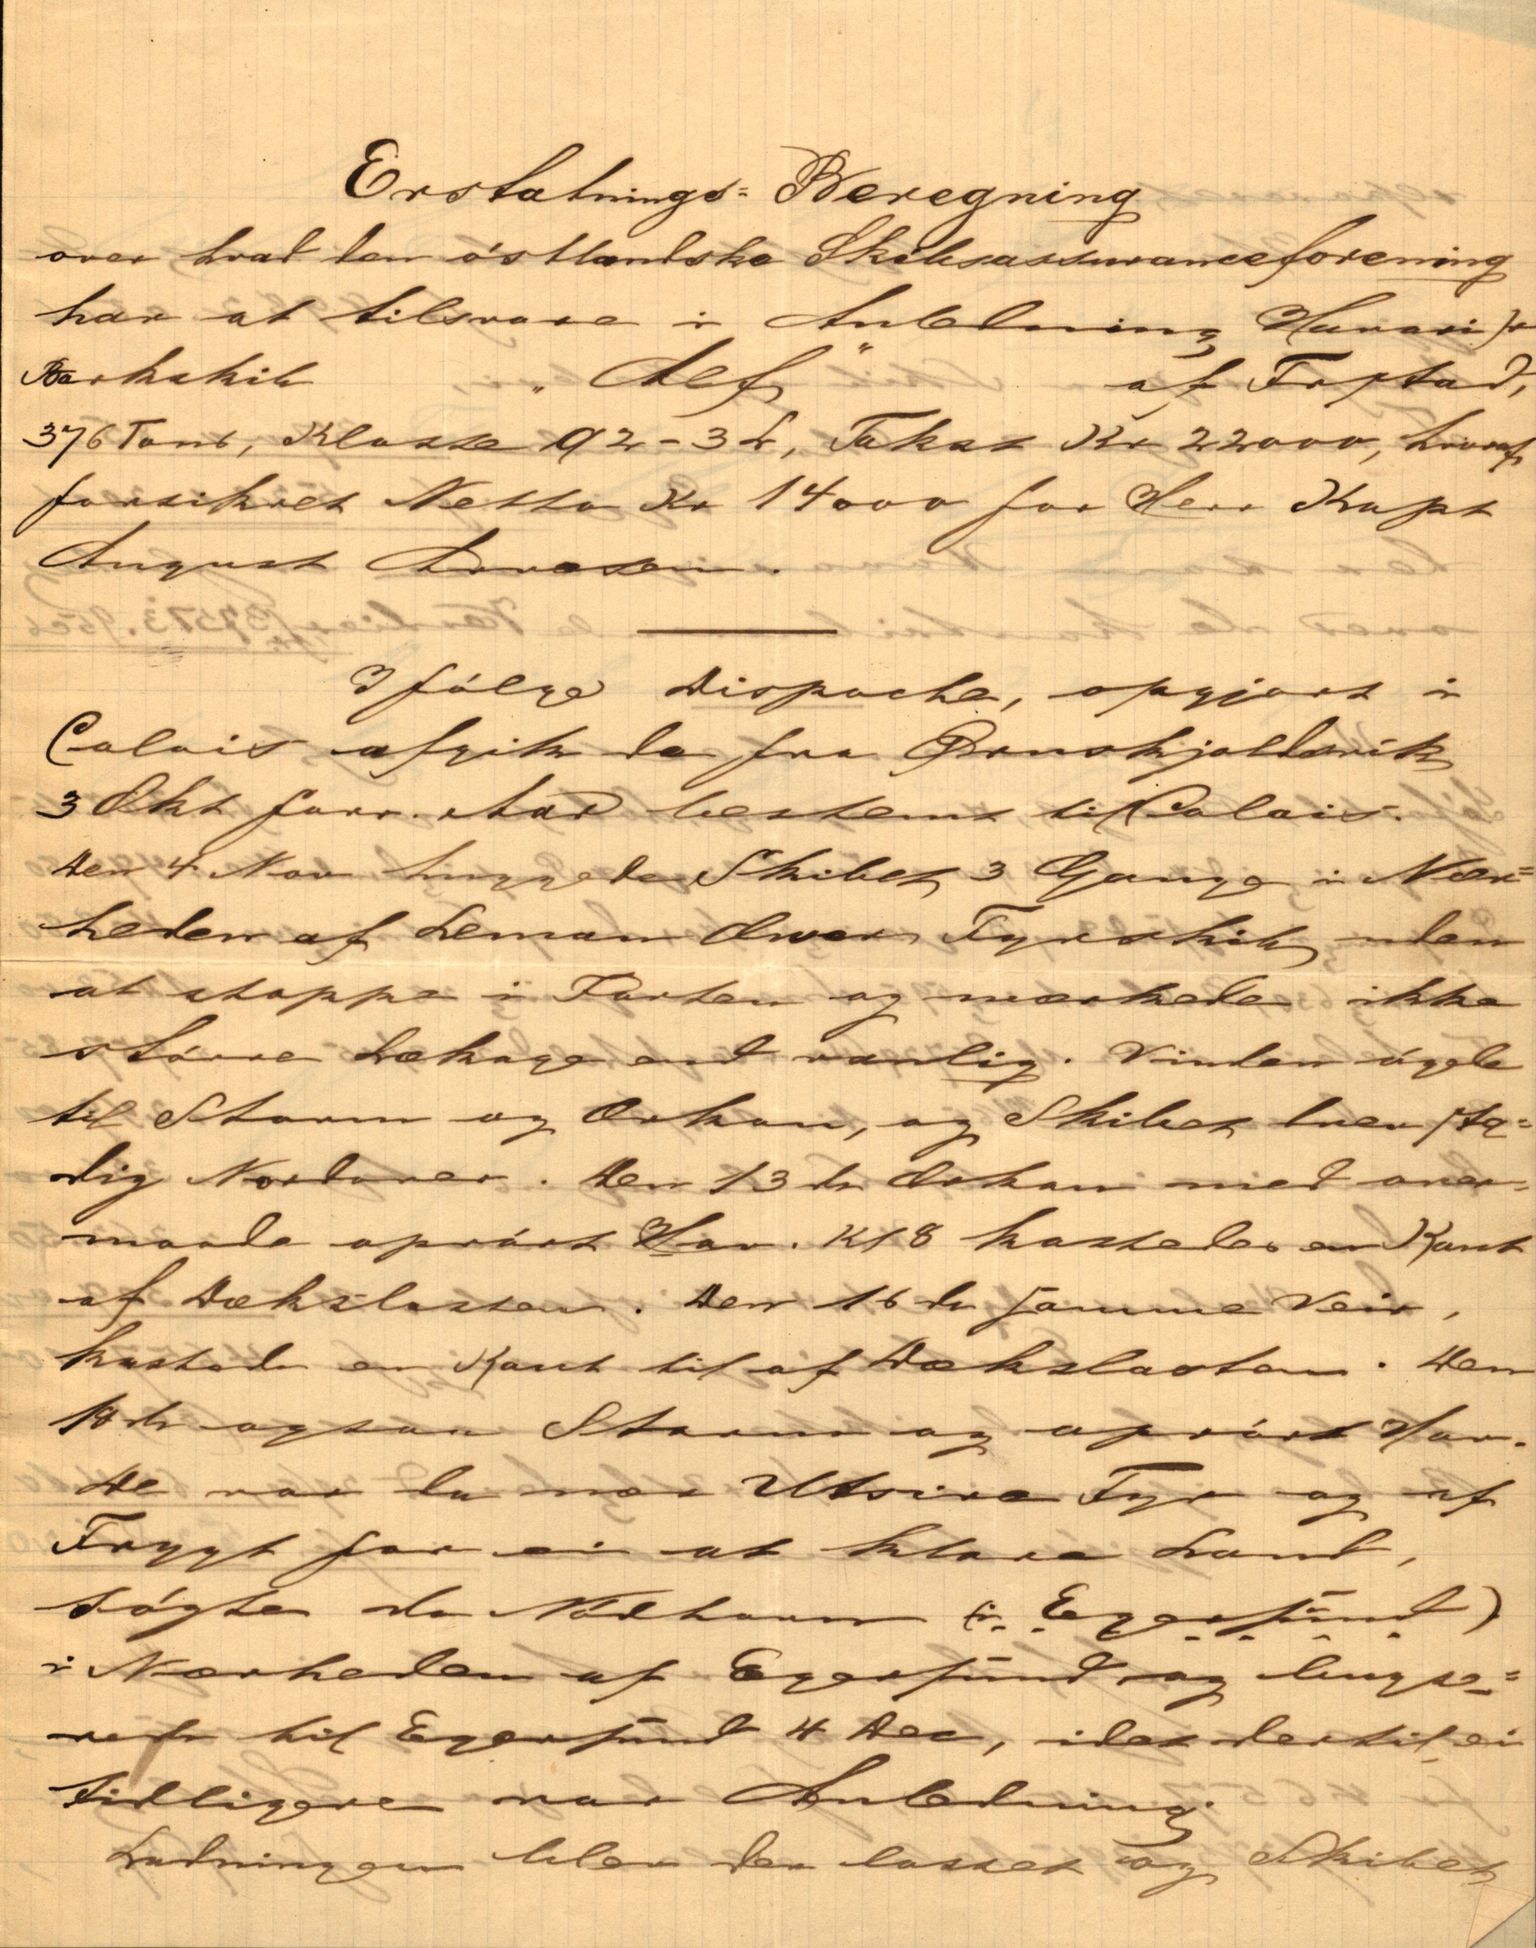 Erstatnings= Beregning
over hvad den østlandske Skibsassuranceforening
har at tilsvare i Anledning Havari pr
Barkskib „Alef“ af Frstad,
376 Tons, Klasse A2-3L, Takst Kr 22000, hvoraf
forsikret Netto Kr 14000 for Herr Kapt
August Arvesen.
Ifølge Dispache, opgjort i
Calais afgik de fra Ørnskjoldsvik
3 Okt forr. Aar bestemt til Calais.
Den 4 Nov huggede Skibet 3 Gange i Nær=
heden af Leman Ower Fyrskib, uden
at stoppe i Farten og mærkede ikke
større Lækage end vanlig. Vinden øgede
til Storm og Orkan, og Skibet drev sta=
dig Nordover. Den 13 de Orkan med over-
maade oprørt Hav. Kl 8 kastedes en Kant
af Dækslasten. Den 16 de samme Veir,
kastede en Kant til af Dækslasten. Den
18 de ogsaa Storm og oprørt Hav.
De var da nær Utsire Fyr og af
Frygt for ei at klare Land,
søgte de Nødhavn (i Egersund)
i Nærheden af Egersund og bugse=
redes til Egersund 4 Dec, idet dertil ei
tidligere var Anledning.
Ladningen blev der losset og Skibet